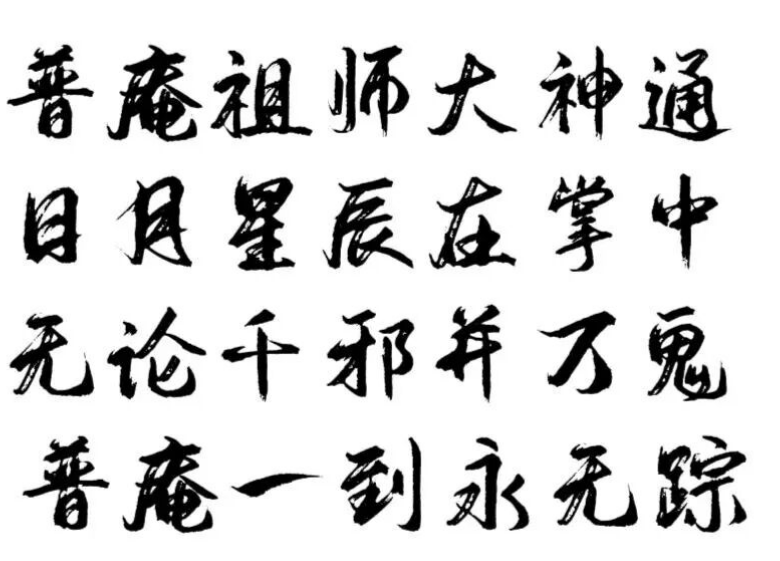 普庵祖师大神通
日月星辰在掌中
无论千邪并万鬼
普庵一到永无踪